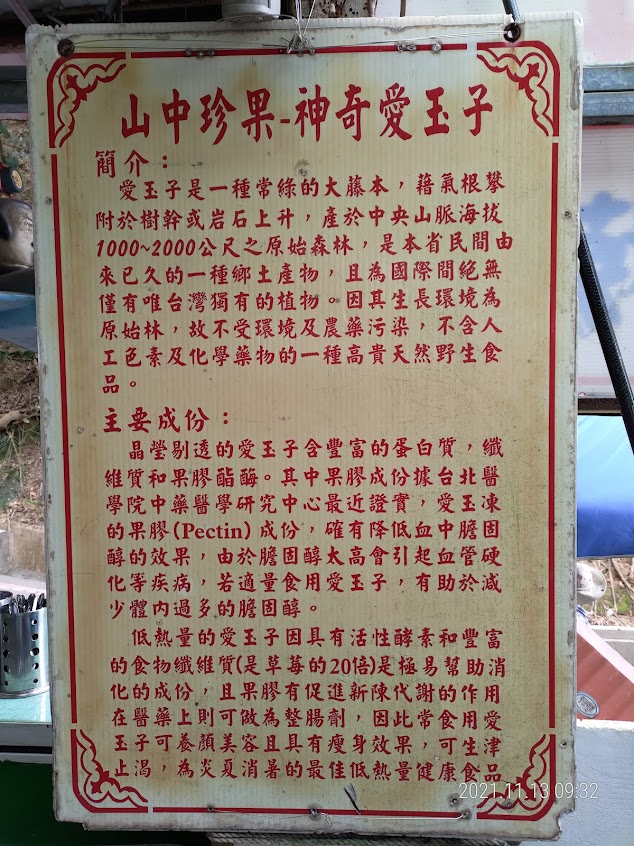 山中珍果-神奇愛玉子
簡介：
愛玉子是一種常綠的大藤本，藉氣根攀
附於樹幹或岩石上升，產於中央山脈海拔
1000~2000公尺之原始森林，是本省民間由
來已久的一種鄉土產物，且為國際間絕無
僅有唯台灣獨有的植物。因其生長環境為
原始林，故不受環境及農藥污染，不含人
工色素及化學藥物的一種高貴天然野生食
品。
主要成份：
晶瑩剔透的愛玉子含豐富的蛋白質，纖
維質和果膠酯酶。其中果膠成份據台北醫
學院中藥醫學研究中心最近證實，愛玉凍
的果膠(Pectin)成份，確有降低血中膽固
醇的效果，由於膽固醇太高會引起血管硬
化等疾病，若適量食用愛玉子，有助於減
少體內過多的膽固醇。
低熱量的愛玉子因具有活性酵素和豐富
的食物纖維質(是草莓的20倍)是極易幫助消
化的成份，且果膠有促進新陳代謝的作用
在醫藥上則可做為整腸劑，因此常食用愛
玉子可養顏美容且具有瘦身效果，可生津
止渴，為炎夏消暑的最佳低熱量健康食品
2021.11.13 09:32